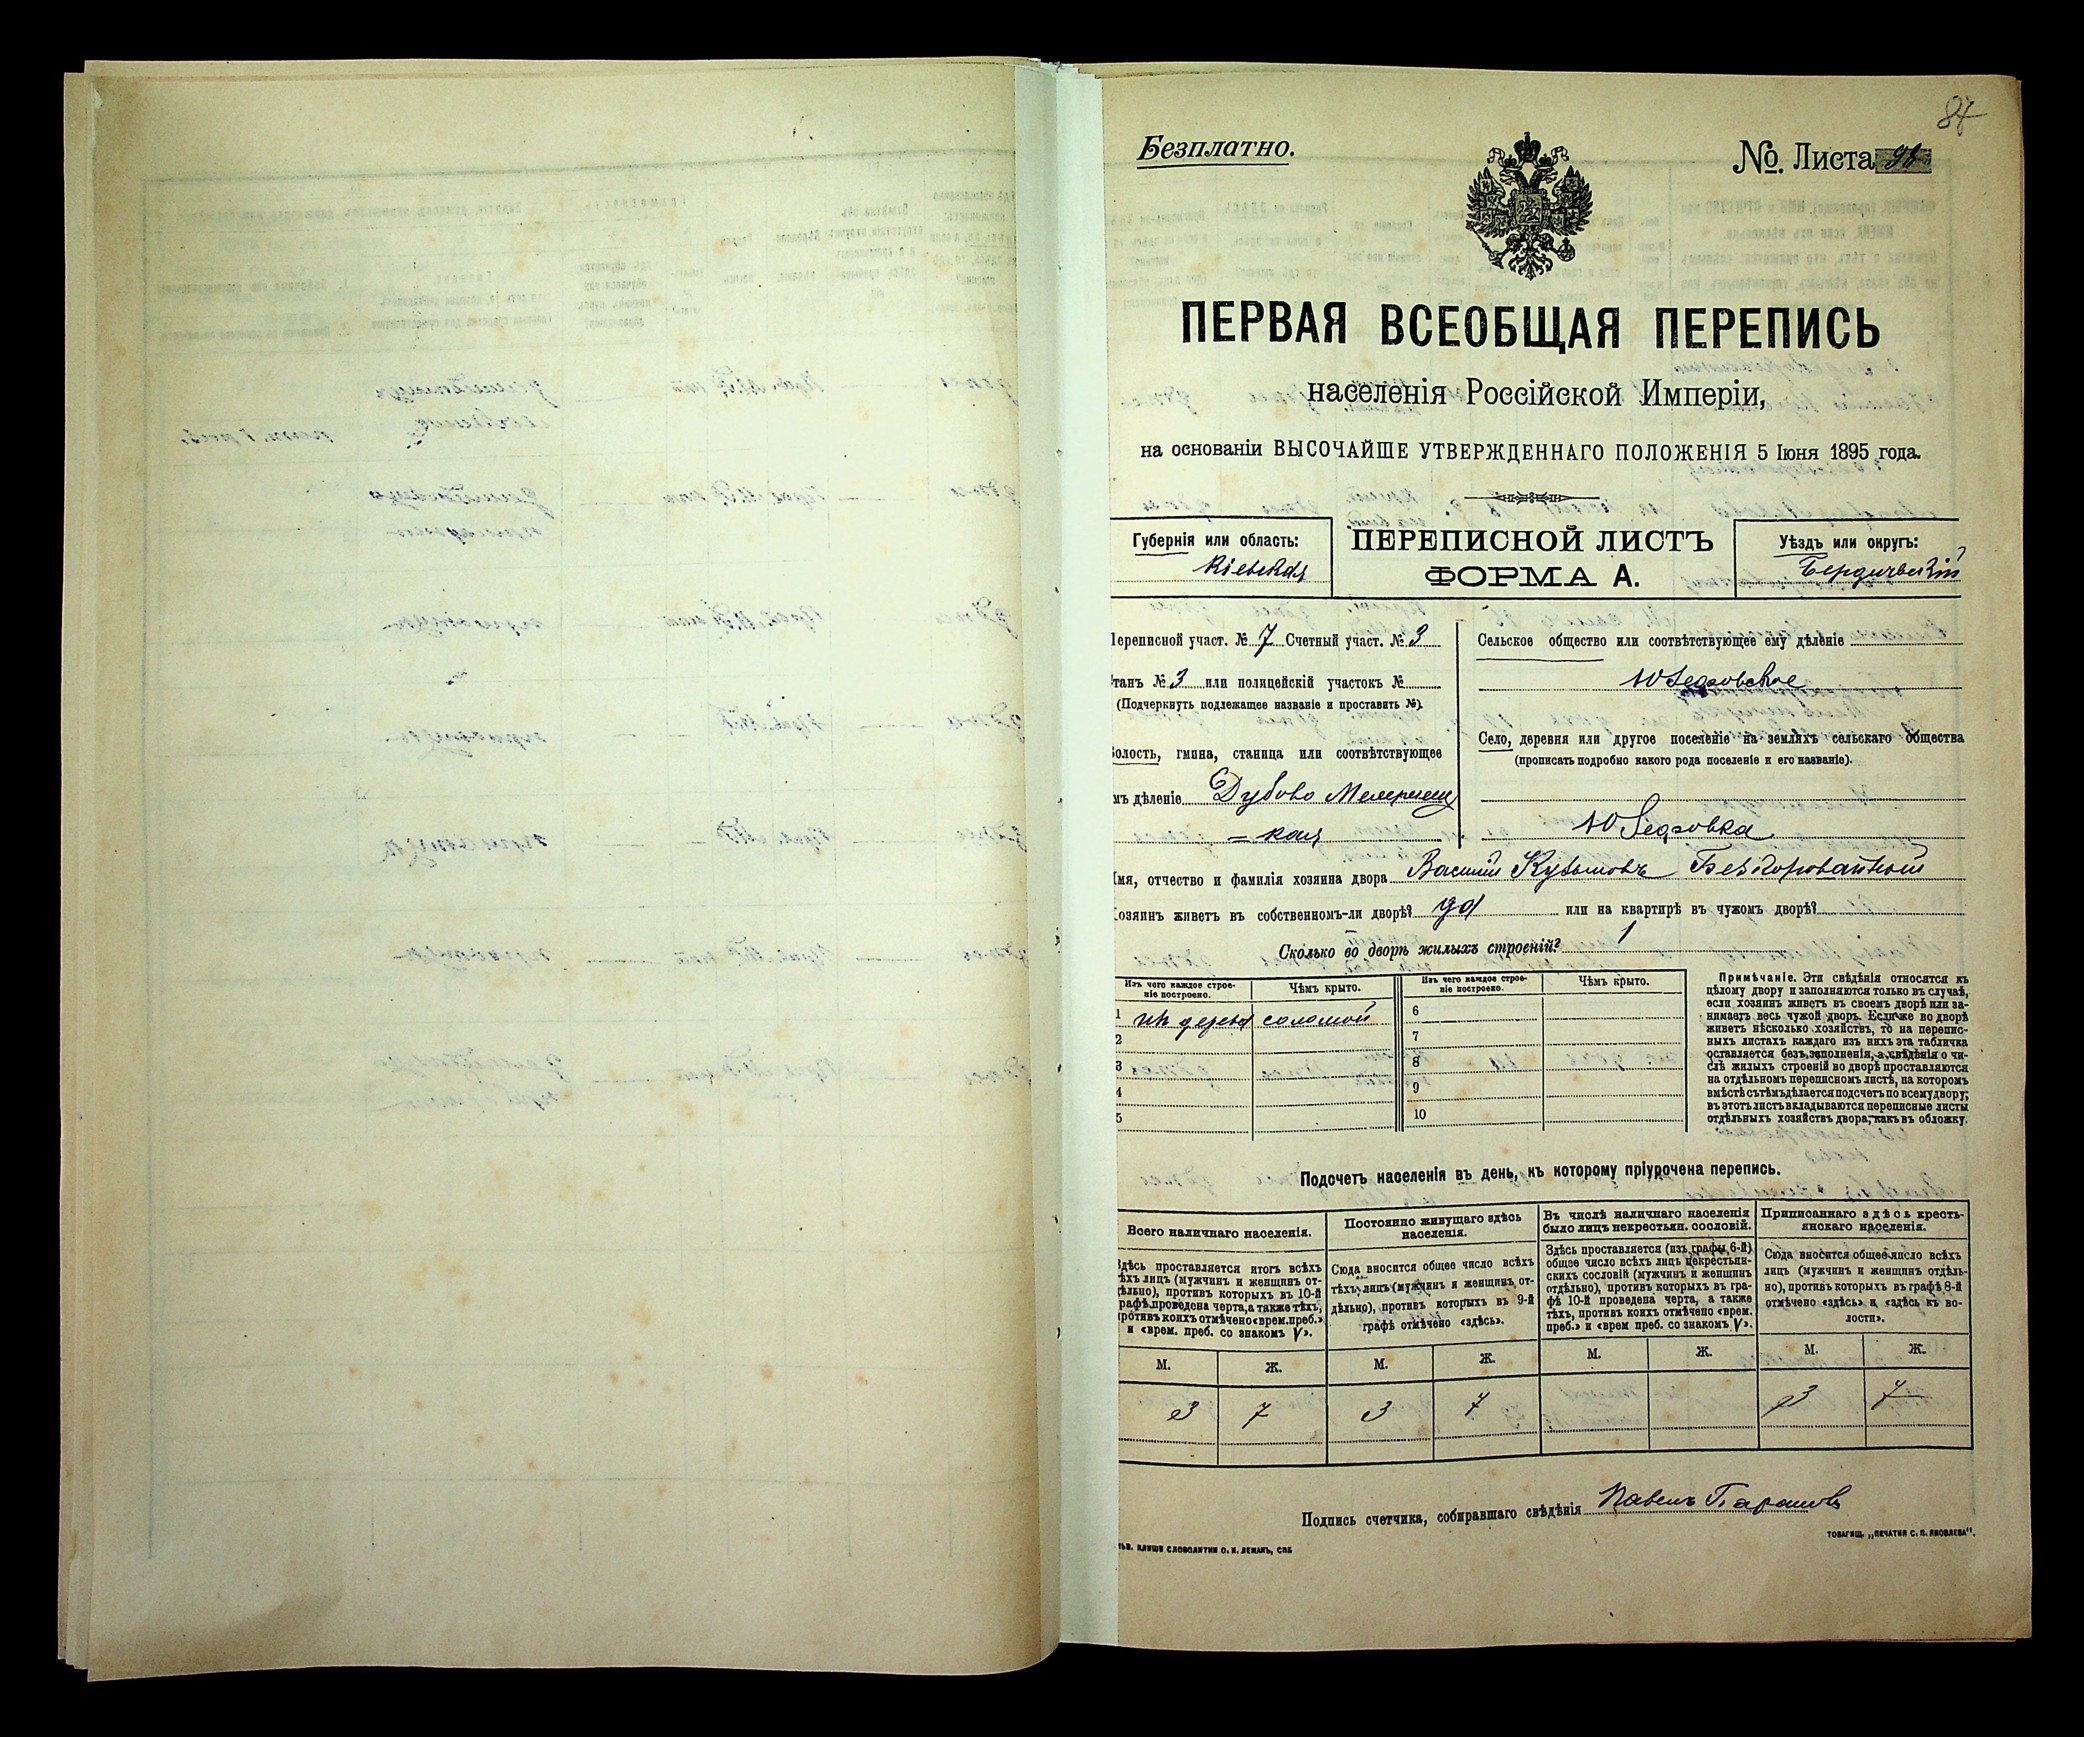 87
Безплатно.
№ Листа 98
ПЕРВАЯ ВСЕОБЩАЯ ПЕРЕПИСЬ
населенія Россійской Имперіи,
на основаніи ВЫСОЧАЙШЕ УТВЕРЖДЕННАГО ПОЛОЖЕНІЯ 5 Іюня 1895 года.
Губернія или область:
Кіевская
ПЕРЕПИСНОЙ ЛИСТЪ
ФОРМА А.
Уѣздъ или округъ:
Бердичевскій
Переписной участ. № 7 Счетный участ. № 3
Станъ № 3 или полицейскій участокъ №
(Подчеркнуть подлежащее названіе и проставить №).
Волость, гмина, станица или соотвѣтствующее
имъ дѣленіе Дубово Махаринец
= кая
Сельское общество или соотвѣтствующее ему дѣленіе
Юзефовское
Село, деревня или другое поселеніе на земляхъ сельскаго общества
(прописать подробно какого рода поселеніе и его названіе).
Юзефовка
Имя, отчество и фамилія хозяина двора Василій Кузьмовъ
Хозяинъ живетъ въ собственномъ-ли дворѣ? да или на квартирѣ въ чужомъ дворѣ?
Сколько во дворѣ жилыхъ строеній? 1
Изъ чего каждое строе-
ніе построено.
Чѣмъ крыто.
Изъ чего каждое строе-
ніе построено.
Чѣмъ крыто.
1 изъ дерева соломой
2
3
4
5
6
7
8
9
10
Примѣчаніе. Эти свѣдѣнія относятся къ
цѣлому двору и заполняются только въ случаѣ,
если хозяинъ живетъ въ своемъ дворѣ или за-
нимаетъ весь чужой дворъ. Если же во дворѣ
живетъ нѣсколько хозяйствъ, то на перепис-
ныхъ листахъ каждаго изъ нихъ эта табличка
оставляется безъ заполненія, а свѣдѣнія о чи-
слѣ жилыхъ строеній во дворѣ проставляются
на отдѣльномъ переписномъ листѣ, на которомъ
вмѣстѣ съ тѣмъ дѣлается подсчетъ по всему двору;
въ этотъ листъ вкладываются переписные листы
отдѣльныхъ хозяйствъ двора, какъ въ обложку.
Подсчетъ населенія въ день, къ которому пріурочена перепись.
Всего наличнаго населенія.
Здѣсь проставляется итогъ всѣхъ
тѣхъ лицъ (мужчинъ и женщинъ от-
дѣльно), противъ которыхъ въ 10-й
графѣ проведена черта, а также тѣхъ,
противъ коихъ отмѣчено «врем. преб.»
и «врем. преб. со знакомъ V».
Постоянно живущаго здѣсь
населенія.
Сюда вносится общее число всѣхъ
тѣхъ лицъ (мужчинъ и женщинъ от-
дѣльно), противъ которыхъ въ 9-й
графѣ отмѣчено «здѣсь».
Въ числѣ наличнаго населенія
было лицъ некрестьян. сословій.
Здѣсь проставляется (изъ графы 6-й)
общее число всѣхъ лицъ некрестьян-
скихъ сословій (мужчинъ и женщинъ
отдѣльно), противъ которыхъ въ гра-
фѣ 10-й проведена черта, а также
тѣхъ, противъ коихъ отмѣчено «врем.
преб.» и «врем преб. со знакомъ V».
Приписаннаго здѣсь кресть-
янскаго населенія.
Сюда вносится общее число всѣхъ
лицъ (мужчинъ и женщинъ отдѣль-
но), противъ которыхъ въ графѣ 8-й
отмѣчено «здѣсь» и «здѣсь къ во-
лости».
М. Ж. М. Ж. М. Ж. М. Ж.
3 7 3 7 3 7
Подпись счетчика, собиравшаго свѣдѣнія Павелъ
КЛИШЕ СЛОВОЛИТНИ О. И. ЛЕМАНЪ, СПБ
ТОВАРИЩ. „ПЕЧАТНЯ С. П. ЯКОВЛЕВА".